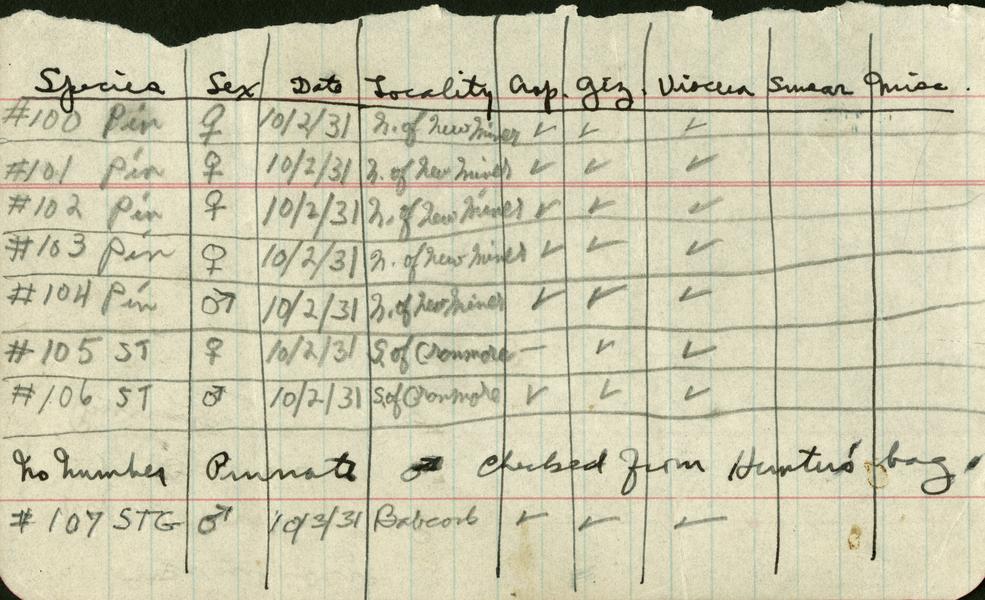 Species Sex Date Locality Crop. Giz. Viscera Smear Misc.
#100 Pin ♀ 10/2/31 N. of New Miner ✓ ✓ ✓
#101 Pin ♀ 10/2/31 N. of New Miner ✓ ✓ ✓
#102 Pin ♀ 10/2/31 N. of New Miner ✓ ✓ ✓
#103 Pin ♀ 10/2/31 N. of New Miner ✓ ✓ ✓
#104 Pin ♂ 10/2/31 N. of New Miner ✓ ✓ ✓
#105 ST ♀ 10/2/31 S. of Cranmore — ✓ ✓
#106 ST ♂ 10/2/31 S. of Cranmore ✓ ✓ ✓
No Number Pinnate ♂ Checked from Hunter's bag.
#107 STG ♂ 10/3/31 Babcock ✓ ✓ ✓